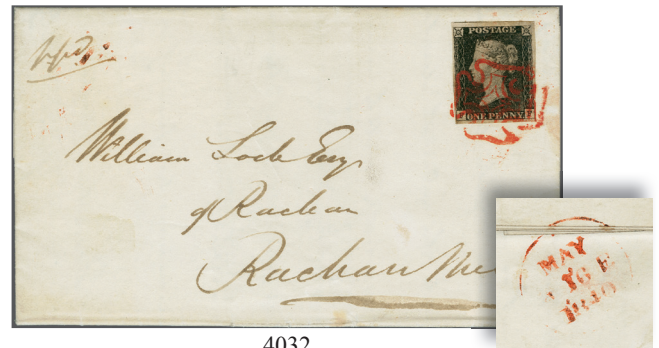 POSTAGE
ONE PENNY
William Lock Esq
of Rachan
Rachan
MAY
16
1840
4032